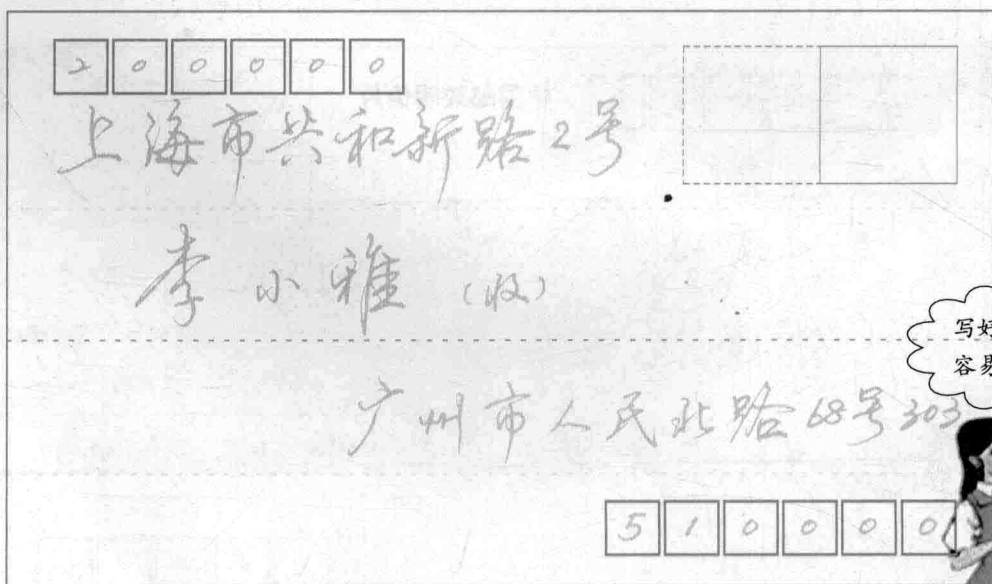 200000
上海市共和新路2号
李小雅（收）
写好
容易
广州市人民北路68号303
510000